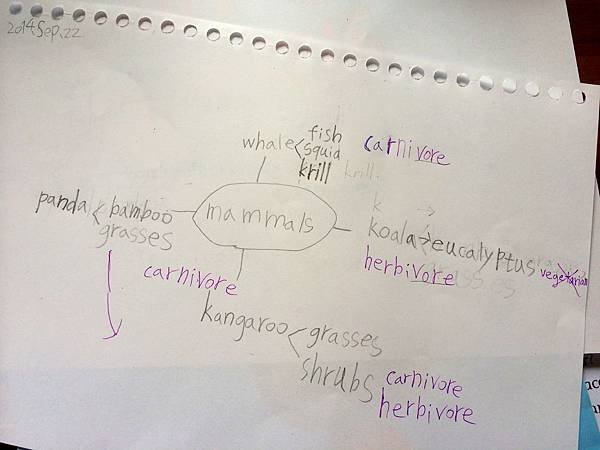 2014 Sep. 22
whale < fish carnivore
squid
krill krill
k →
panda < bamboo
grasses
mammals
koala → eucalyptus vegetarian
herbivore
carnivore
kangaroo < grasses
shrubs carnivore
herbivore